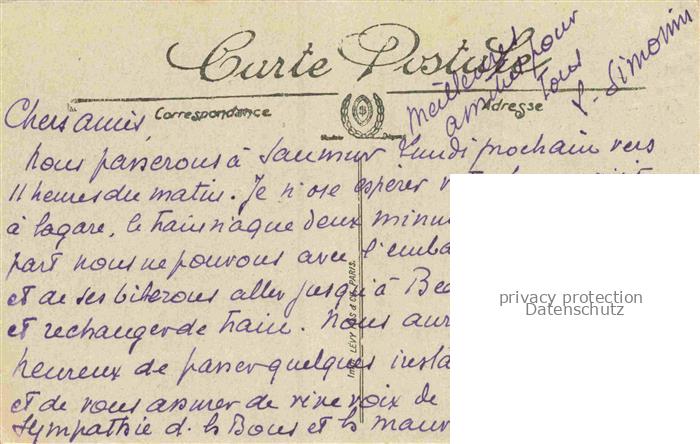 Carte Postale
Correspondance
Adresse
Meilleures
amitiés pour
tous
S. Simonin
Chers amis,
Nous passerons à Saumur Lundi prochain vers
11 heures du matin. Je n'ose espérer
à la gare, le train n'a que deux minu
part nous ne pouvons avec l'emba
et de ses biberons aller jusqu'à Bea
et rechanger de train. Nous aur
heureux de passer quelques insta
et de vous assurer de vive voix de
Sympathie d. ls Bons et ls mauv
Imp. LÉVY FILS & Cie, PARIS.
privacy protection
Datenschutz